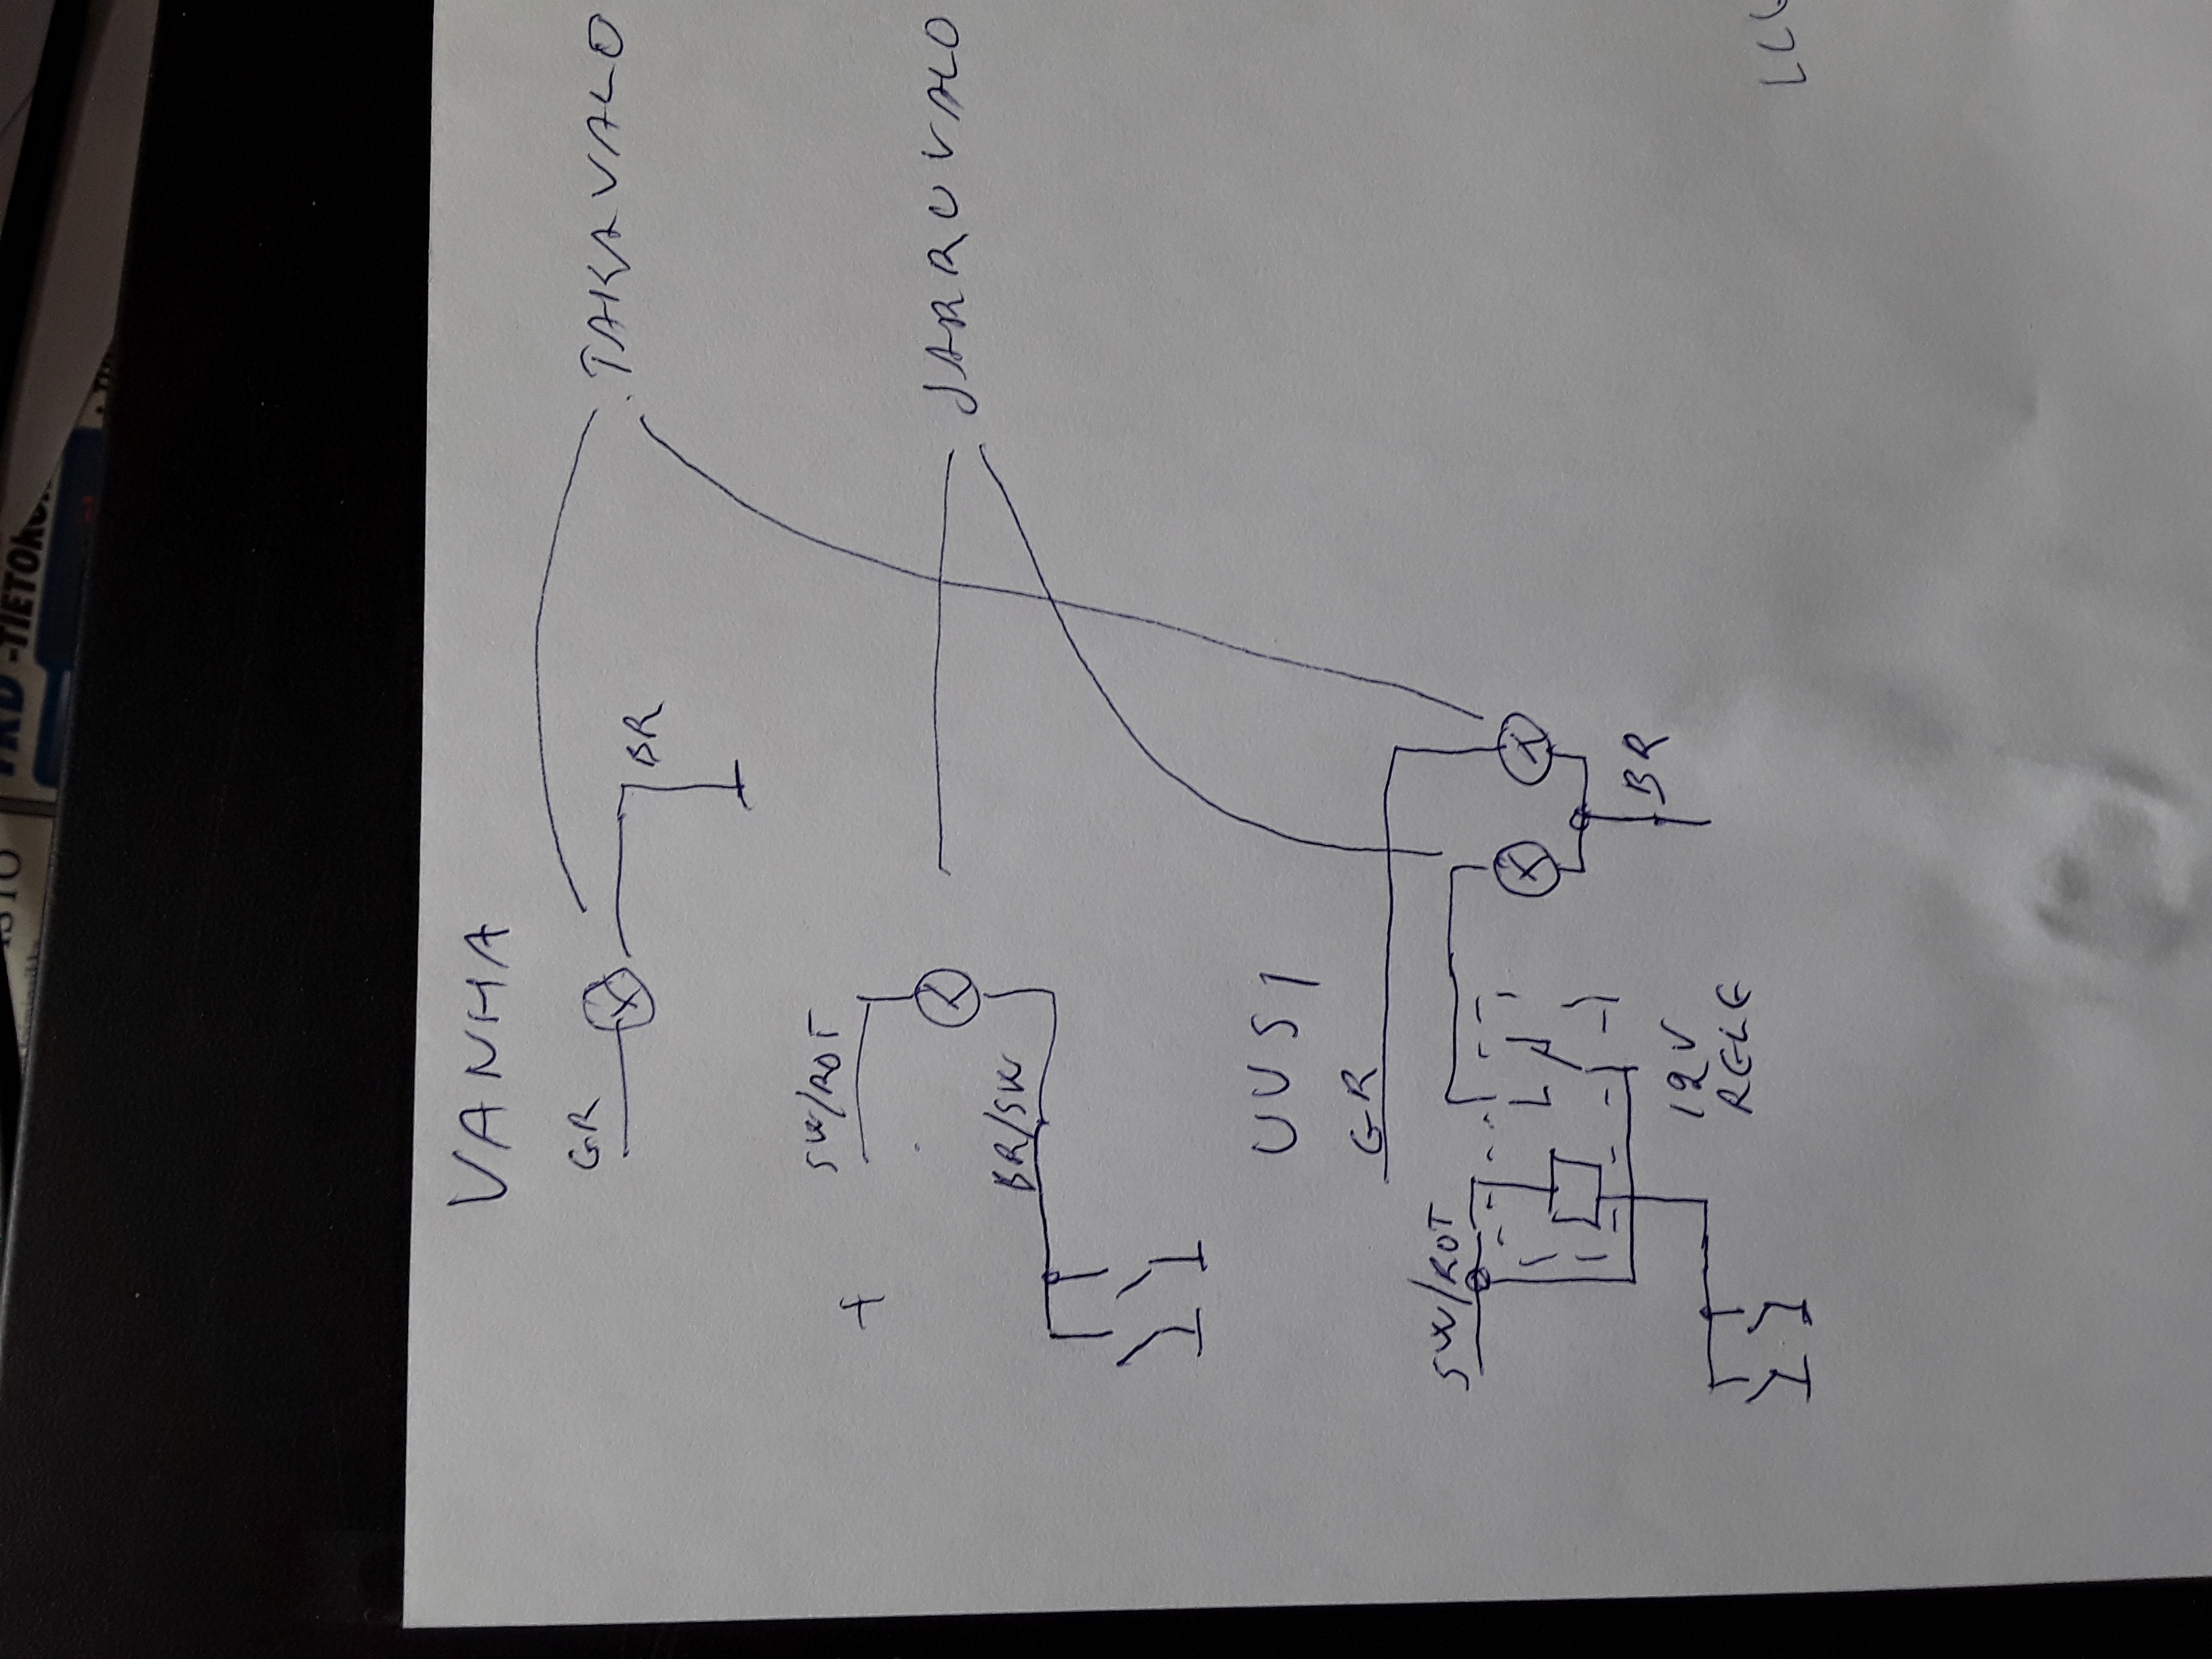 VANHA
GR
BR
TAKAVALO
SW/ROT
+
BR/SW
JARRUVALO
UUSI
GR
SW/ROT
BR
12V
RELE
-TIETOKO